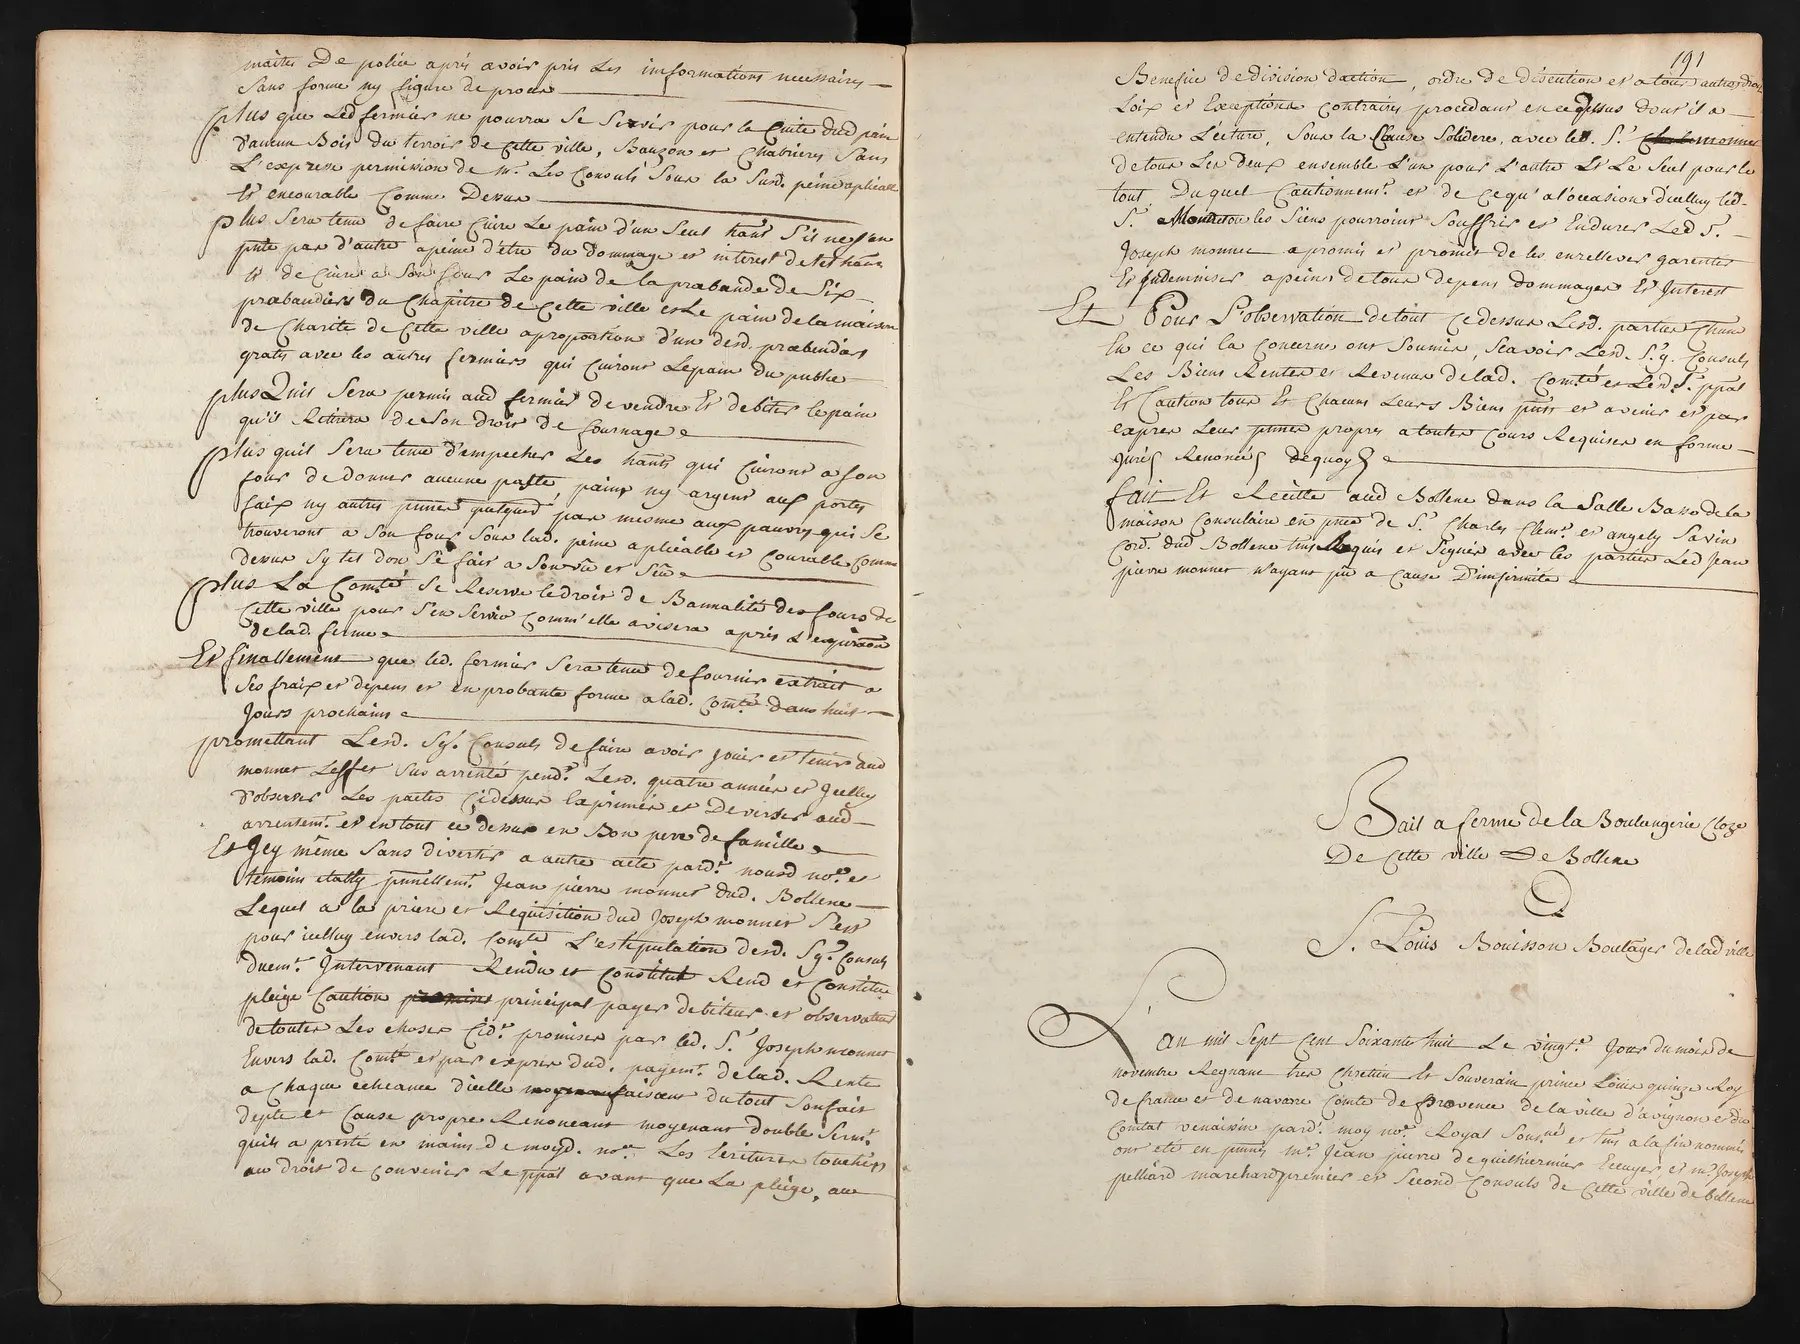 maitres De police après avoir pris Les informations necessaires
Sans forme ny figure de proces
plus que Led fermier ne pourra Se Servir pour la Cuite dud pain
d'aucun Bois du terroir de Cette ville, Bauzon et Chabrieres Sans
L'expresse permission de mrs Les Consuls Sous la Susd. peine aplicable
Et encourable Comme Dessus
plus Sera tenu de faire Cuire Le pain d'un Seul hant S'il ne S'en
pnte pas d'autre apeine d'être du dommage et interest
Et de Cuire a Son four Le pain de la præbande de Six
præbandiers du Chapitre de Cette ville et Le pain de la maison
de Charité de Cette ville a proportion d'un desd. præbendiers
gratis avec les autres fermiers qui Cuiront Le pain du public
plus Quil Sera permis aud fermier de vendre Et debiter le pain
qu'il Retirera de Son droit de fournage
plus quil Sera tenu d'empecher Les hants qui Cuiront a Son
four de donner aucune patte, pains ny argent aux portes
faix ny autres pnnes quelqued par mesme aux pauvres qui Se
trouveront a Son four Sous lad. peine aplicable et Courable Comme
dessus Sy tel don Se fait a Son vû et Sçû
plus La Comté Se Reserve le droit de Bannalité des fours de
Cette ville pour S'en Servir Comm'elle avisera après L'expiraon
de lad. ferme
Et finallement que led. fermier Sera tenu de fournir extrait a
Ses fraix et depens et en probante forme a lad. Comté dans huit
Jours prochains
promettant Lesd. Srs. Consuls de faire avoir Jouir et tenir aud
monnet L'effet Sus arrenté pendt. Lesd. quatre années et Jcelluy
d'observer Les pactes Cidessus Exprimés et De verser aud
arrentemt. et en tout ce dessus en Bon pere de famille
Et Jcy même Sans divertir a autre acte pardt. nousd nore. et
temoins etably pnnellemt. Jean pierre monnet dud. Bollene
Lequel a la priere et Requisition dud Joseph monnet S'est
pour icelluy envers lad. Comté L'estipulation desd. Srs. Consuls
duemt. Jntervenant Rendu et Constitué Rend et Constitue
pleige Caution principal payer debiteur et observateur
de toutes Les choses Cidt. promises par led. Sr. Joseph monnet
Envers lad. Comté et par exprès dud. payemt. de lad. Rente
a Chaque echeance d'icelle faisant du tout Son fait
depte et Cause propre Renonçant moyenant double Sermt.
quils a presté en mains de moyd. nore. Les Ecritures touchées
au droit de Convenir Le ppal avant que La pleige, au
191
Benefice de division d'action, ordre de discution et a tous autres droits
Loix et Exceptions Contraires procedant en ce dessus dont il a
entendu L'ecture, Sous la Clause Solidere, avec led. Sr. monnet
de tous Les deux ensemble L'un pour L'autre Et Le Seul pour le
tout, Duquel Cautionnemt. et de Ce qu'a l'occasion d'icelluy led.
Sr. monnet ou les Siens pourroint Souffrir et Endurer Led Sr.
Joseph monnet a promis et promet de les en rellever garentir
Et Jndemniser a peine de tous depens dommages Et Jnterest
Et Pour L'observation de tout Cedessus Lesd. parties Chune
En ce qui la Concerne ont Soumis, Sçavoir Lesd. Srs. Consuls
Les Biens Rentes et Revenus de lad. Comté et Lesd. Srs. ppal
Et Caution tous Et Chacuns Leurs Biens pnts et avenir et par
exprès Leur pnnes propres a toutes Cours Requises en forme
Jurés Renoncés Dequoy
fait Et Recitté aud Bollene dans la Salle Basse de la
maison Consulaire en pnce de Sr. Charles Clemt. et angely Savin
Cord. dud Bollene tms Requis et Signés avec les parties Led Jean
pierre monnet n'ayant pû a Cause D'infirmité
Bail a ferme de la Boulangerie Cloze
De Cette ville De Bollene
a
Sr. Louis Bouisson Boulanger de lad ville
L'an mil Sept Cent Soixante huit Le vingte. Jour du mois de
novembre Regnant tres Chretien Et Souverain prince Louis quinze Roy
de france et de navarre Comte de Provence de la ville d'avignon et du
Comtat venaissin pardt. moy nore. Royal Sousné et tms a la fin nommés
ont été en pnnes mr. Jean pierre de guilhiermier Ecuyer, et mr Joseph
pelliard marchard premier et Second Consuls de Cette ville de bollene